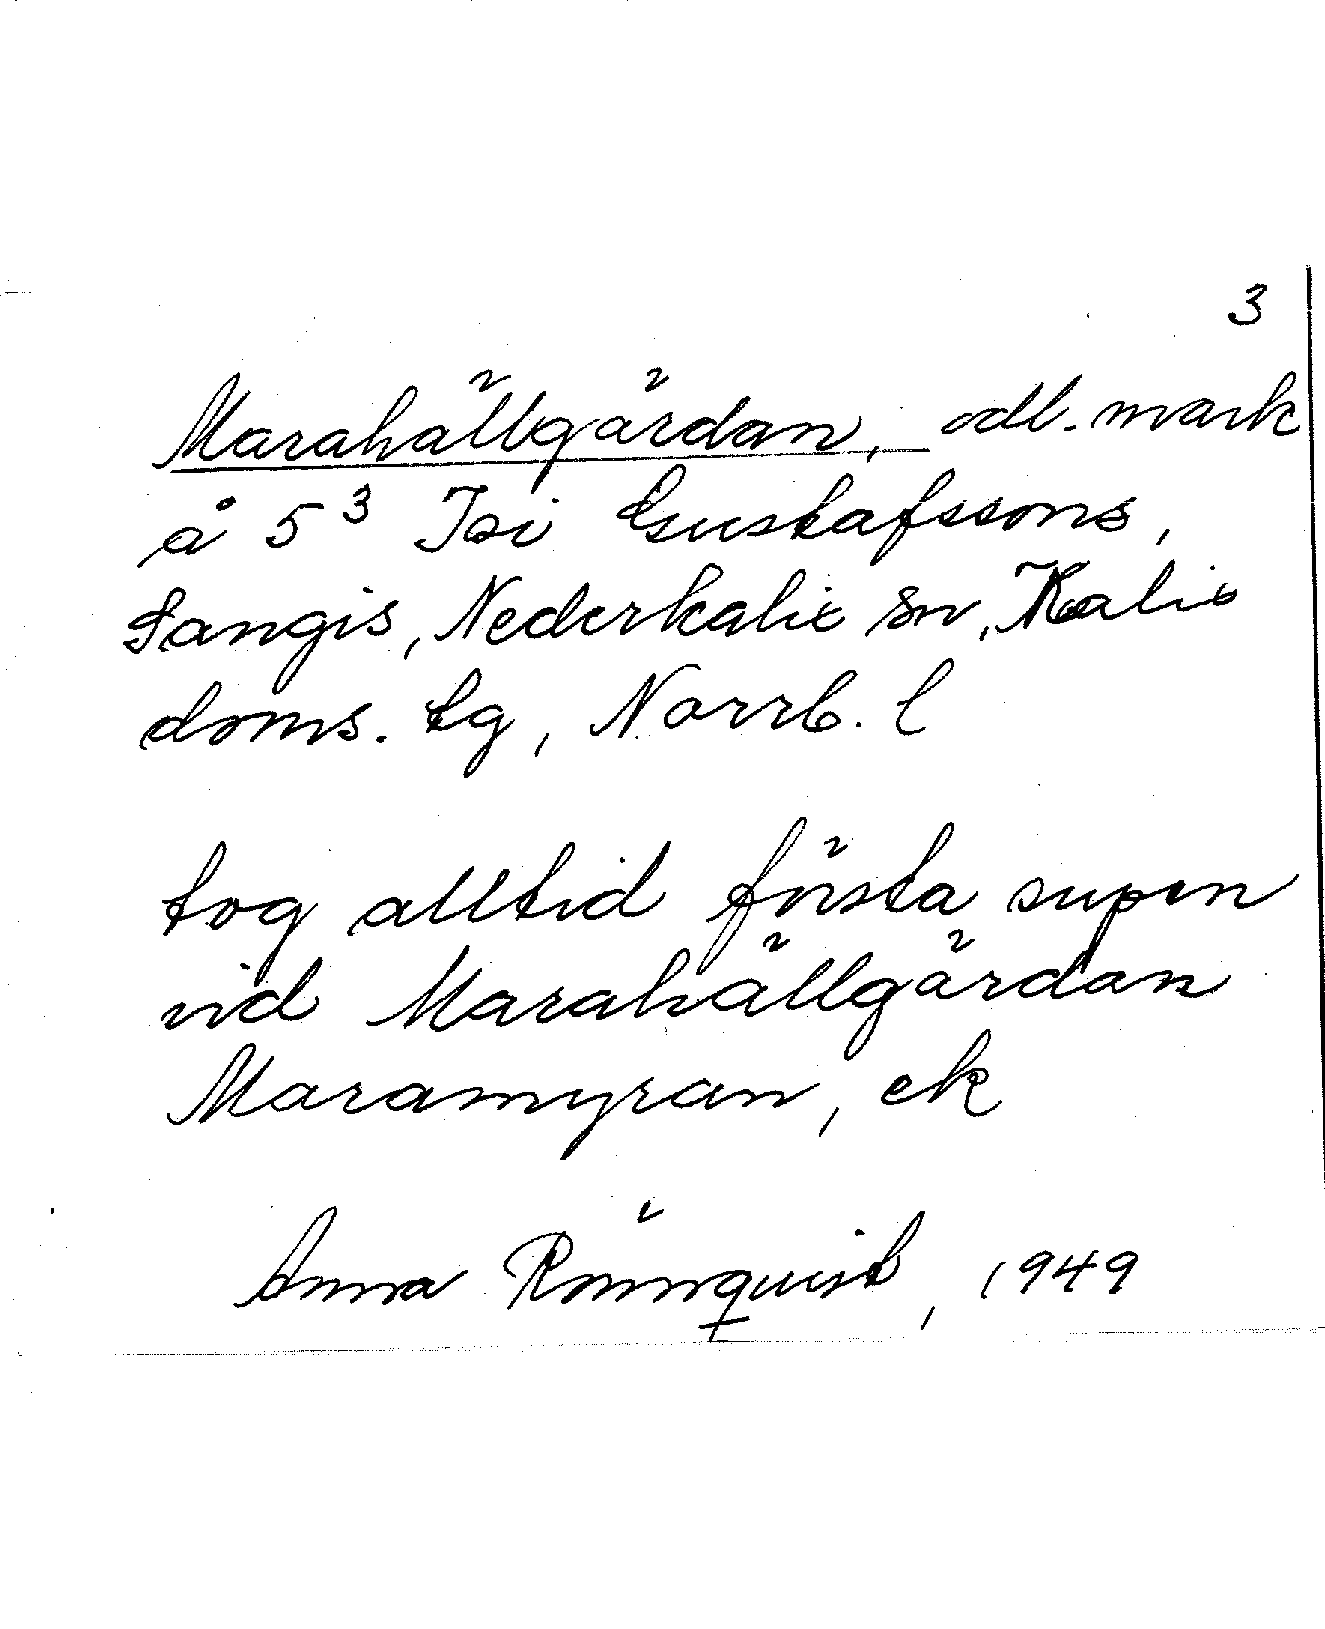 3
Marahällgärdan, odl. mark
å 5³ Isi Gustafssons,
Sangis, Nederkalix sn, Kalix
doms. tg, Norrb. l
tog alltid första supen
vid Marahällgärdan
Maramyran, ek
Anna Rönnquist, 1949